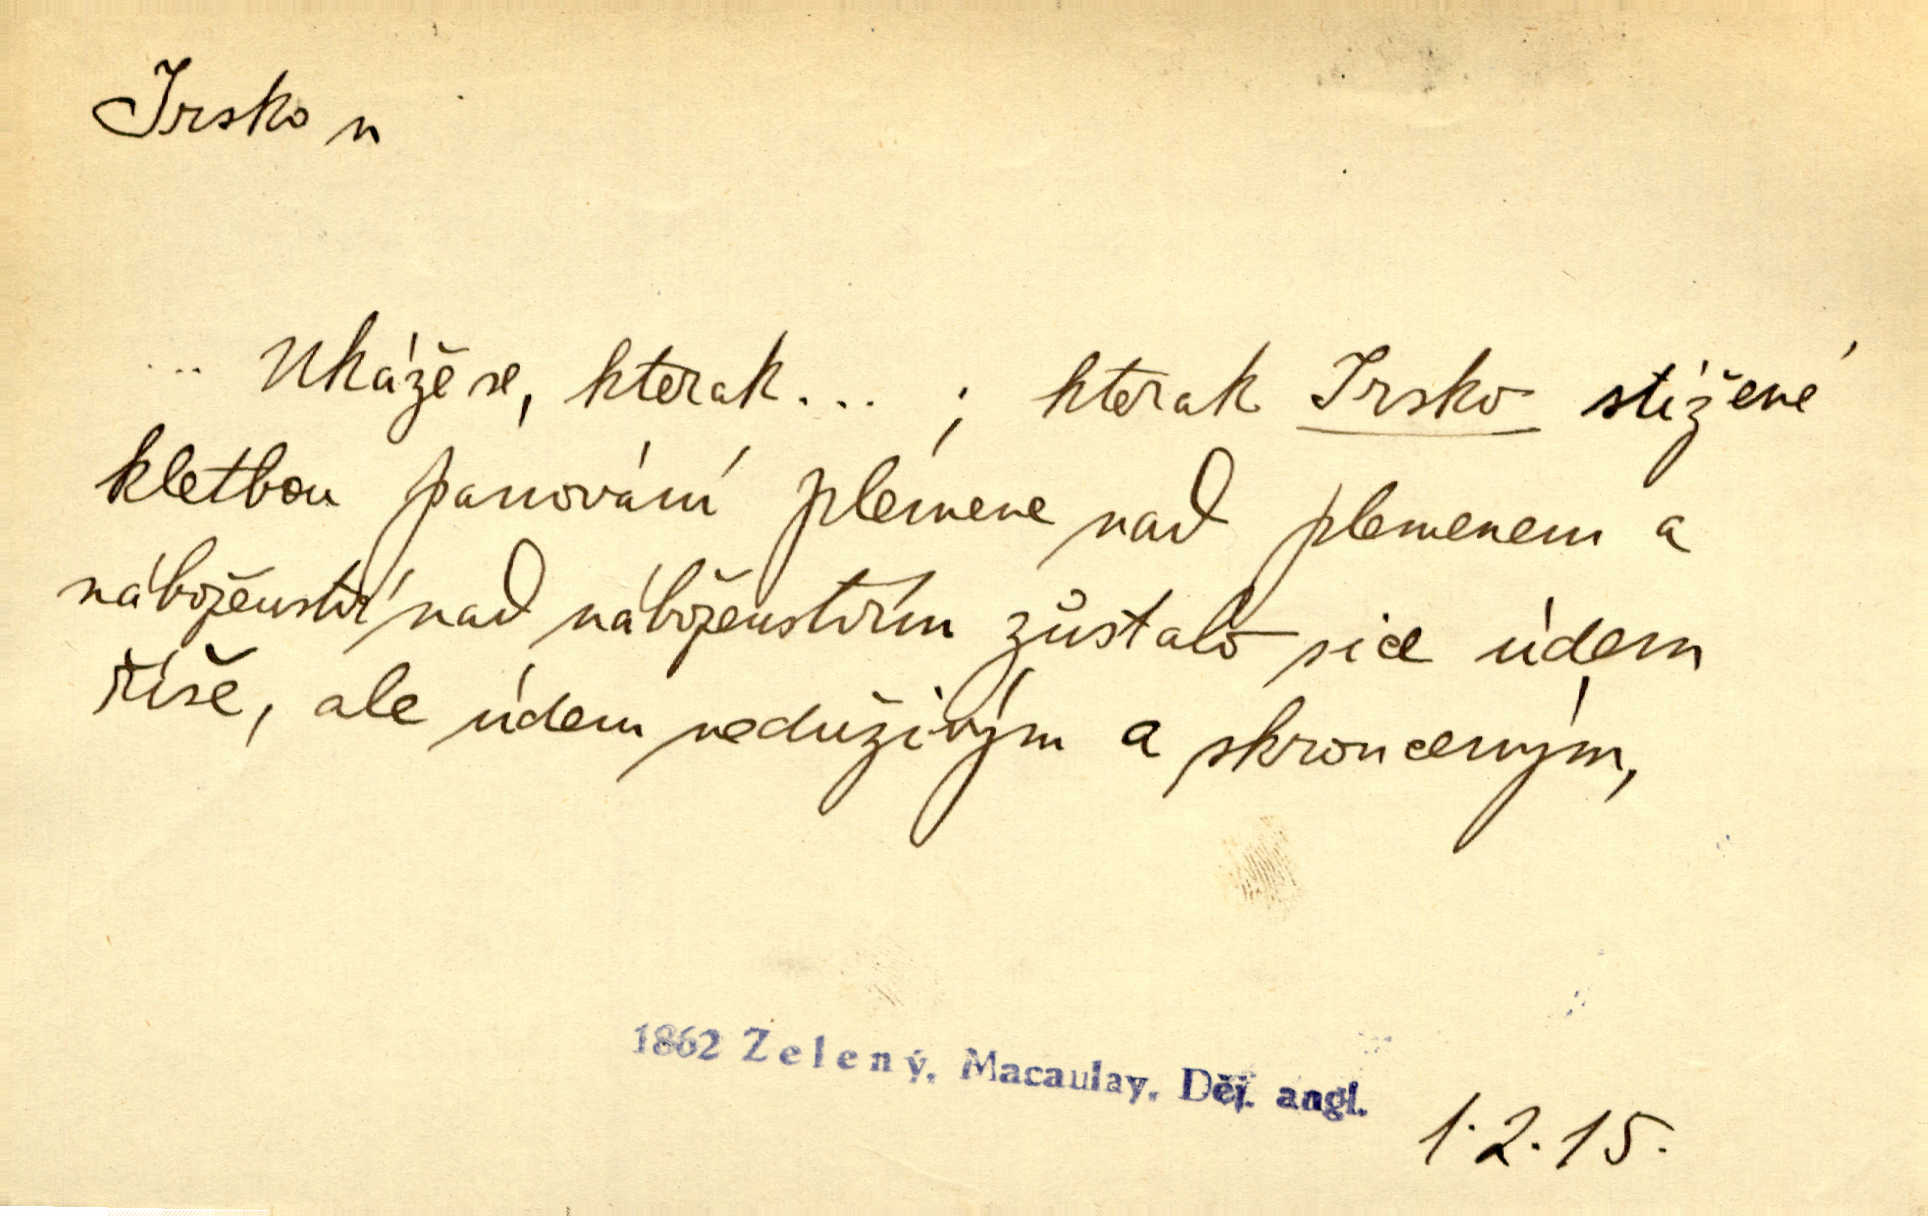 Irsko n
... Ukáže se, kterak... ; kterak Irsko stížené
kletbou panování plemene nad plemenem a
náboženství nad náboženstvím zůstalo sice údem
říše, ale údem neduživým a skrouceným,
1862 Zelený, Macaulay, Děj. angl.
1. 2. 15.